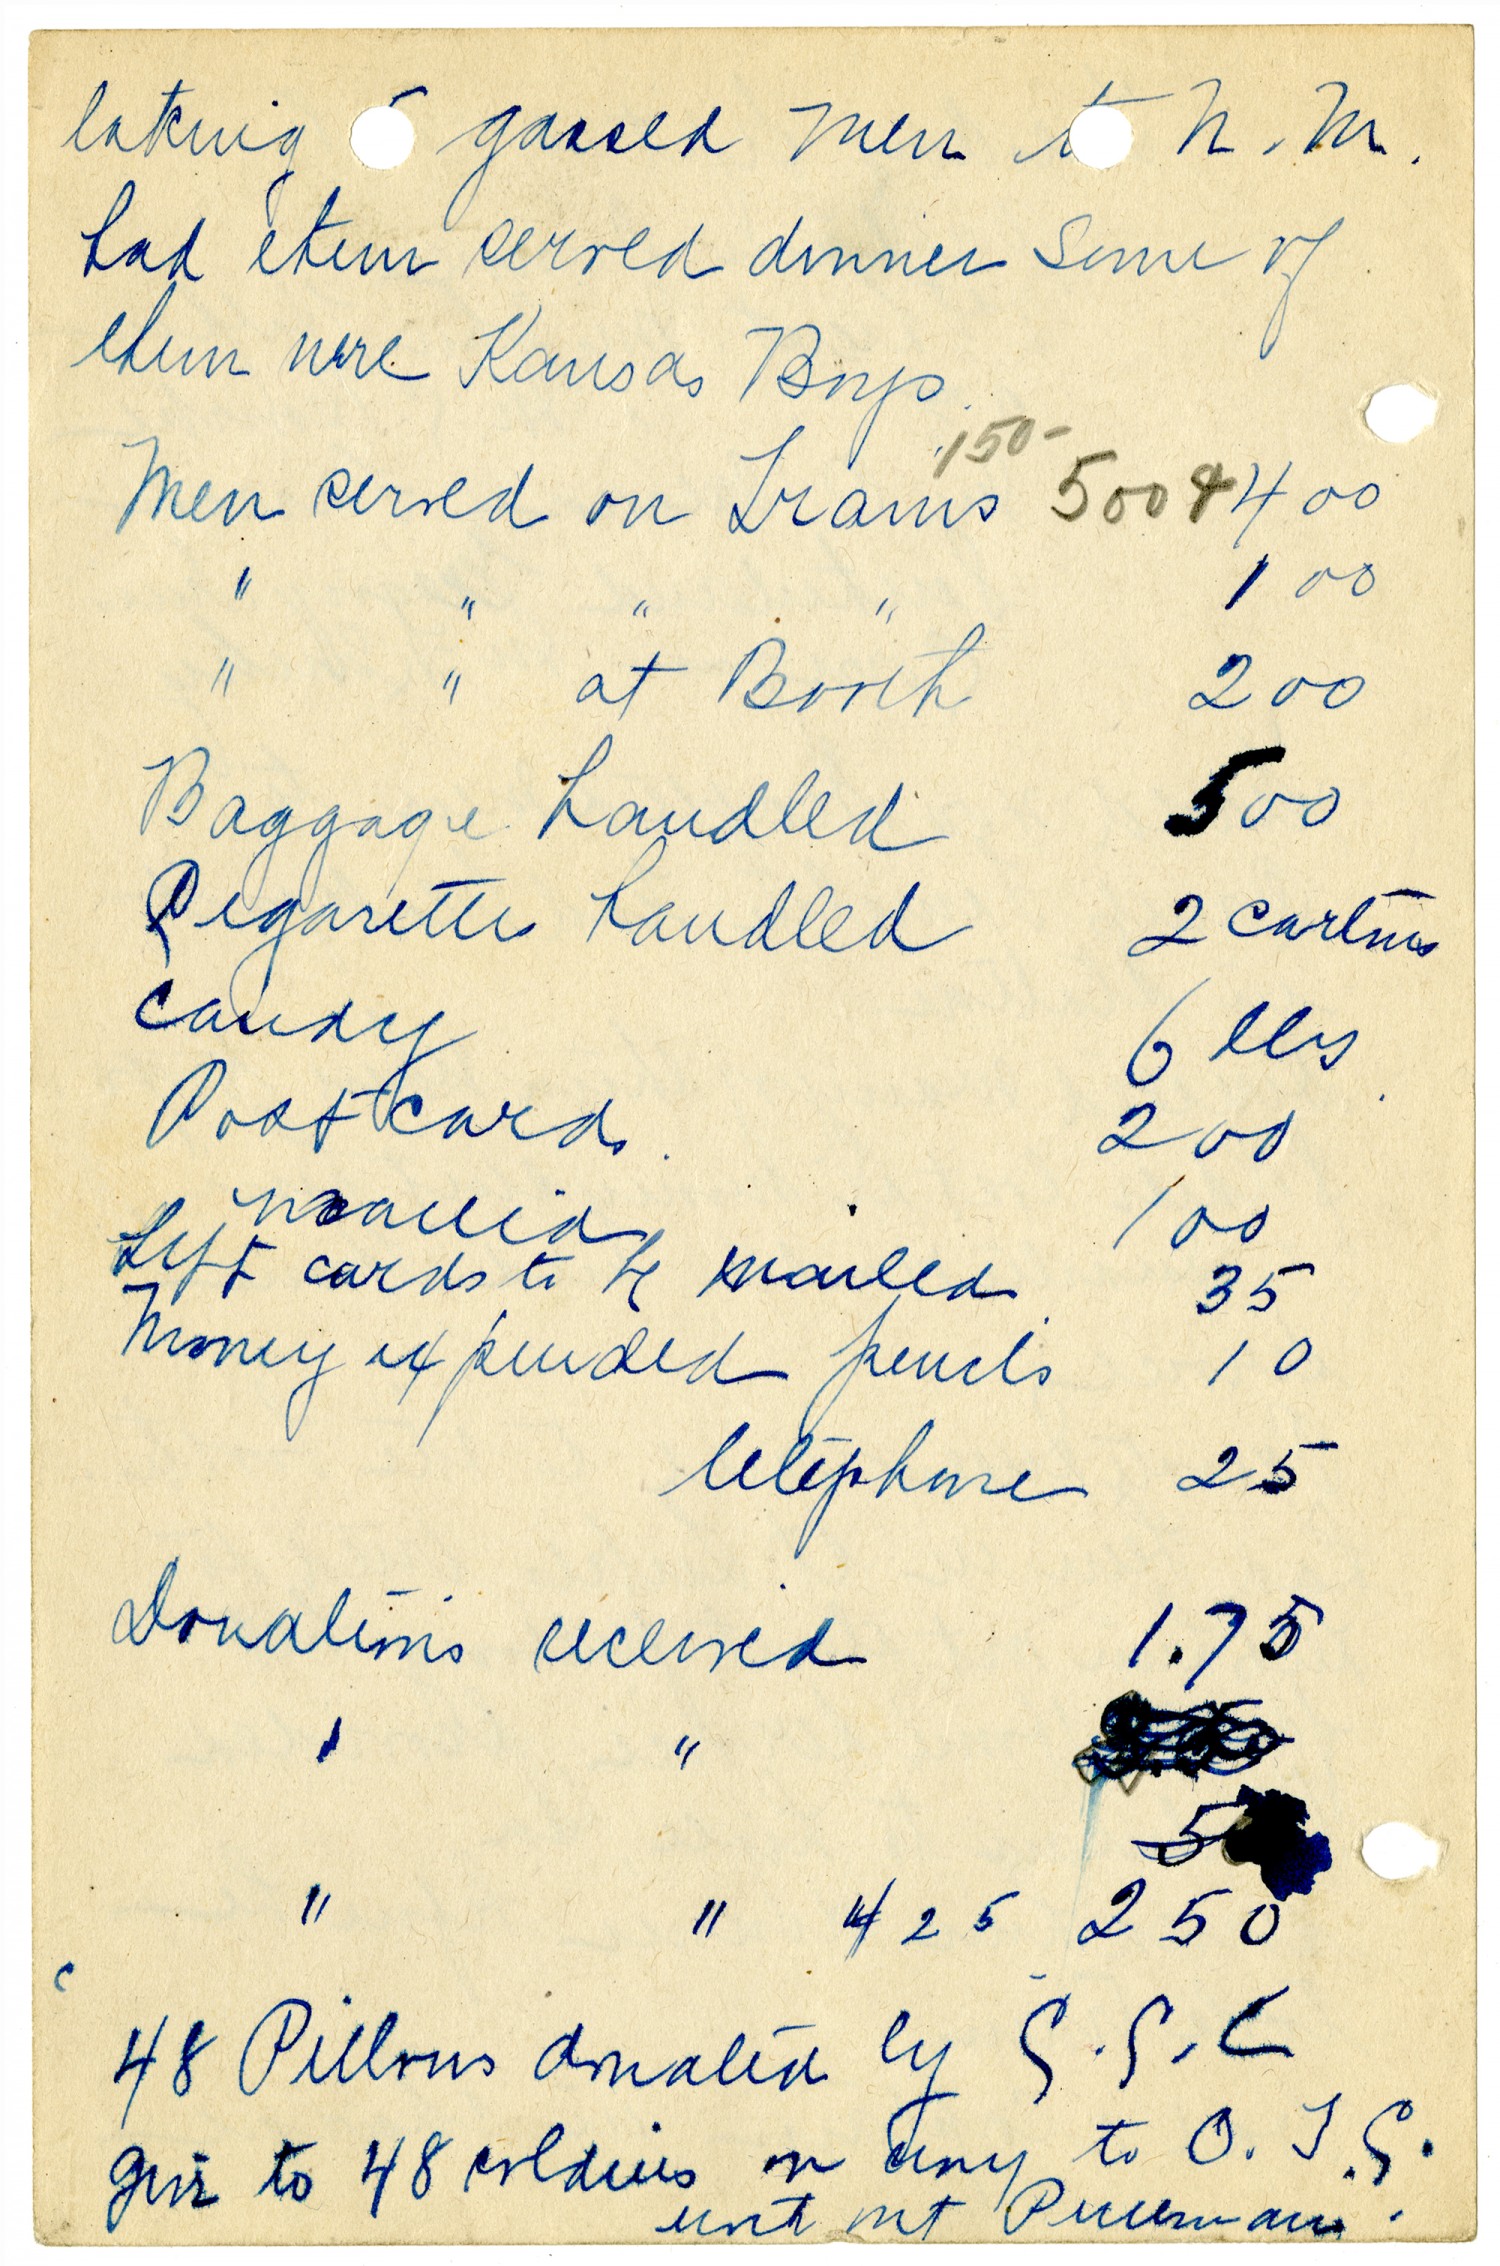 taking 5 gassed men to N. M.
had them served dinner some of
them were Kansas Boys.
150-
Men served on Trains 500 & 400
" " " " 100
" " at Booth 200
Baggage handled 500
Cigarettes handled 2 cartons
Candy 6 lbs
Post cards. 200
mailed 100
Left cards to be mailed 35
Money expended pencils 10
telephone 25
Donations received 1.75
" "
5
" " 4 25 2 50
48 Pillows donated by
give to 48 soldiers on way to O. T. S.
without Pullman.